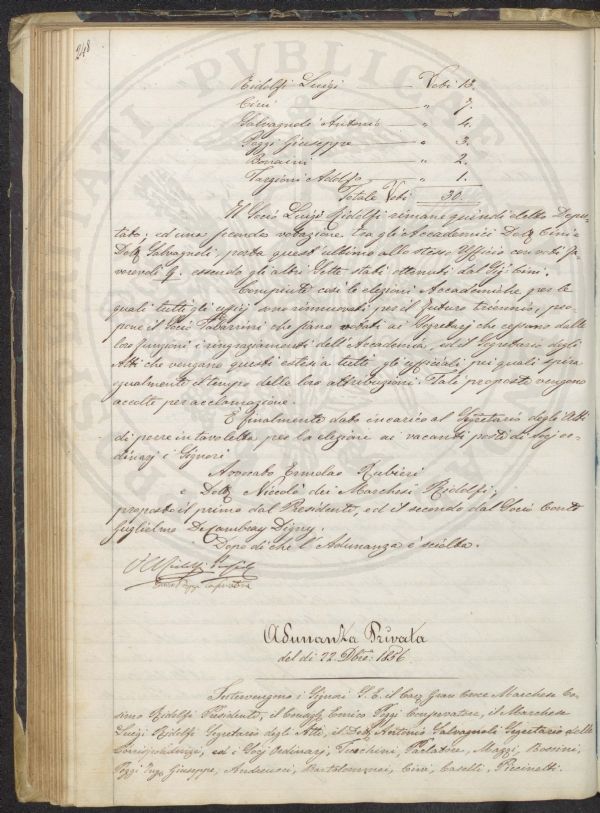 248
Ridolfi Luigi — Voti 13.
Cini — " 7.
Salvagnoli Antonio — " 4.
Poggi Giuseppe — " 3.
Bonaini — " 2.
Targioni Adolfo — " 1.
Totale Voti 30.
Il Socio Luigi Ridolfi rimane quindi eletto Depu-
tato: ed una seconda votazione tra gli Accademici Dott. Cini e
Dott. Salvagnoli, porta quest'ultimo allo stesso Ufficio con voti fa-
vorevoli 9. essendo gli altri sette stati ottenuti dal Sig. Cini.
Compiute così le elezioni Accademiche per le
quali tutti gli ufficj sono rinnuovati per il futuro triennio, pro-
pone il Socio Tabarrini che siano votati ai Segretarj che cessano dalle
loro funzioni i ringraziamenti dell'Accademia, ed il Segretario degli
Atti che vengano questi estesi a tutti gli ufficiali pei quali spira
egualmente il tempo delle loro attribuzioni. Tali proposte vengono
accolte per acclamazione.
È finalmente dato incarico al Segretario degli Atti
di porre in tavoletta per la elezione ai vacanti posti di Socj or-
dinarj i Signori
Avvocato Ermolao Rubieri
e Dott. Niccolò dei Marchesi Ridolfi,
proposto il primo dal Presidente, ed il secondo dal Socio Conte
Guglielmo De Cambray Digny.
Dopo di che l'Adunanza è sciolta.
Ridolfi
Enrico Poggi conservatore
Adunanza Privata
del dì 22 Dbre: 1856.
Intervengono i Signori S. E. il Cav. Gran Croce Marchese Co-
simo Ridolfi Presidente, il Consigl. Enrico Poggi Conservatore, il Marchese
Luigi Ridolfi Segretario degli Atti, il Dott. Antonio Salvagnoli Segretario delle
Corrispondenze, ed i Socj Ordinarj, Taschini, Parlatore, Mazzi, Rossini,
Poggi Ing. Giuseppe, Andreucci, Bartolommei, Cini, Caselli, Piccinetti.